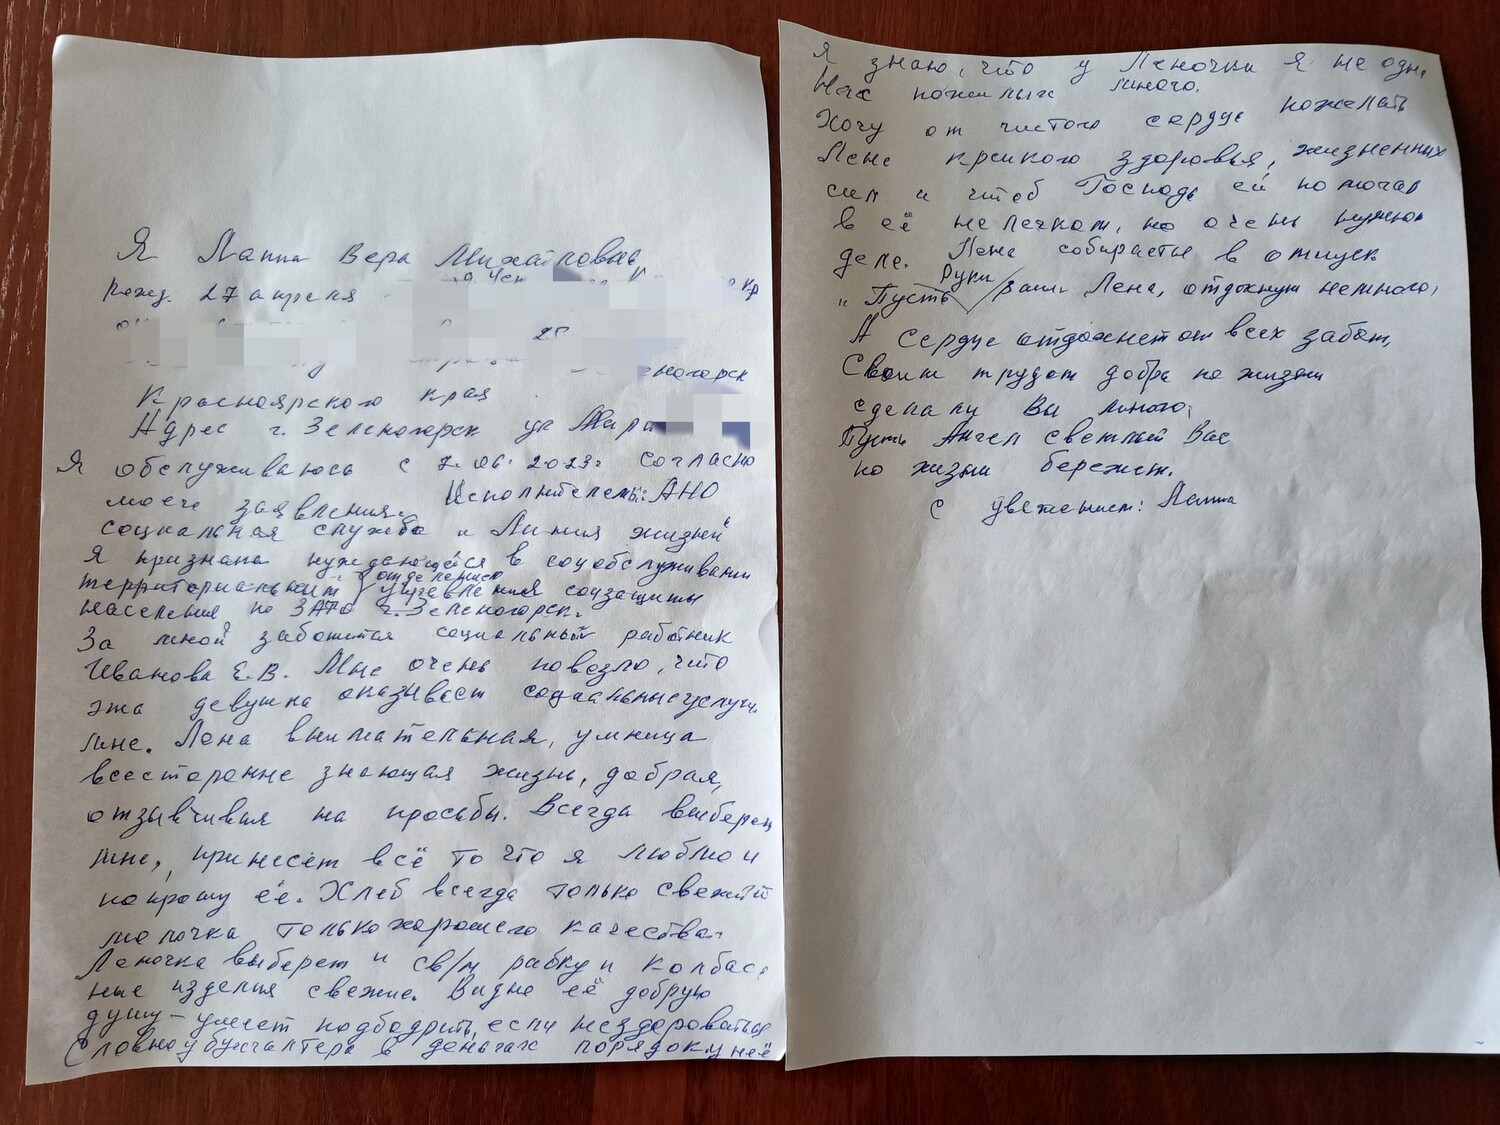 Я Лаппа Вера Михайловна
рожд. 27 апреля
25
еногорск
Красноярского края
Адрес г. Зеленогорск ул Мира
Я обслуживаюсь с 7.06.2023г согласно
моего заявления. Исполнитель: АНО
социальная служба "Линия жизни"
Я признана нуждающейся в соцобслуживании
территориальным отделением управления соцзащиты
населения по ЗАТО г. Зеленогорск.
За мной заботится социальный работник
Иванова Е.В. Мне очень повезло, что
эта девушка оказывает социальные услуги
мне. Лена внимательная, умница
всесторонне знающая жизнь, добрая,
отзывчивая на просьбы. Всегда выберет
мне, принесёт всё то что я люблю и
попрошу её. Хлеб всегда только свежий
молочка только хорошего качества.
Леночка выберет и св/м рыбку и колбас
ные изделия свежие. Видно её добрую
душу – умеет подбодрить, если нездоровиться
Словно у бухгалтера в деньгах порядок у неё
Я знаю, что у Леночки я не одна
Нас пожилых много.
Хочу от чистого сердце пожелать
Лене крепкого здоровья, жизненных
сил и чтоб Господь ей помогал
в её нелегком, но очень нужном
деле. Лена собирается в отпуск
"Пусть руки ваши Лена, отдохнут немного,
А сердце отдохнет от всех забот,
Своим трудом добра по жизни
сделали Вы много,
Пусть Ангел светлый Вас
по жизни бережет.
С уважением: Лаппа